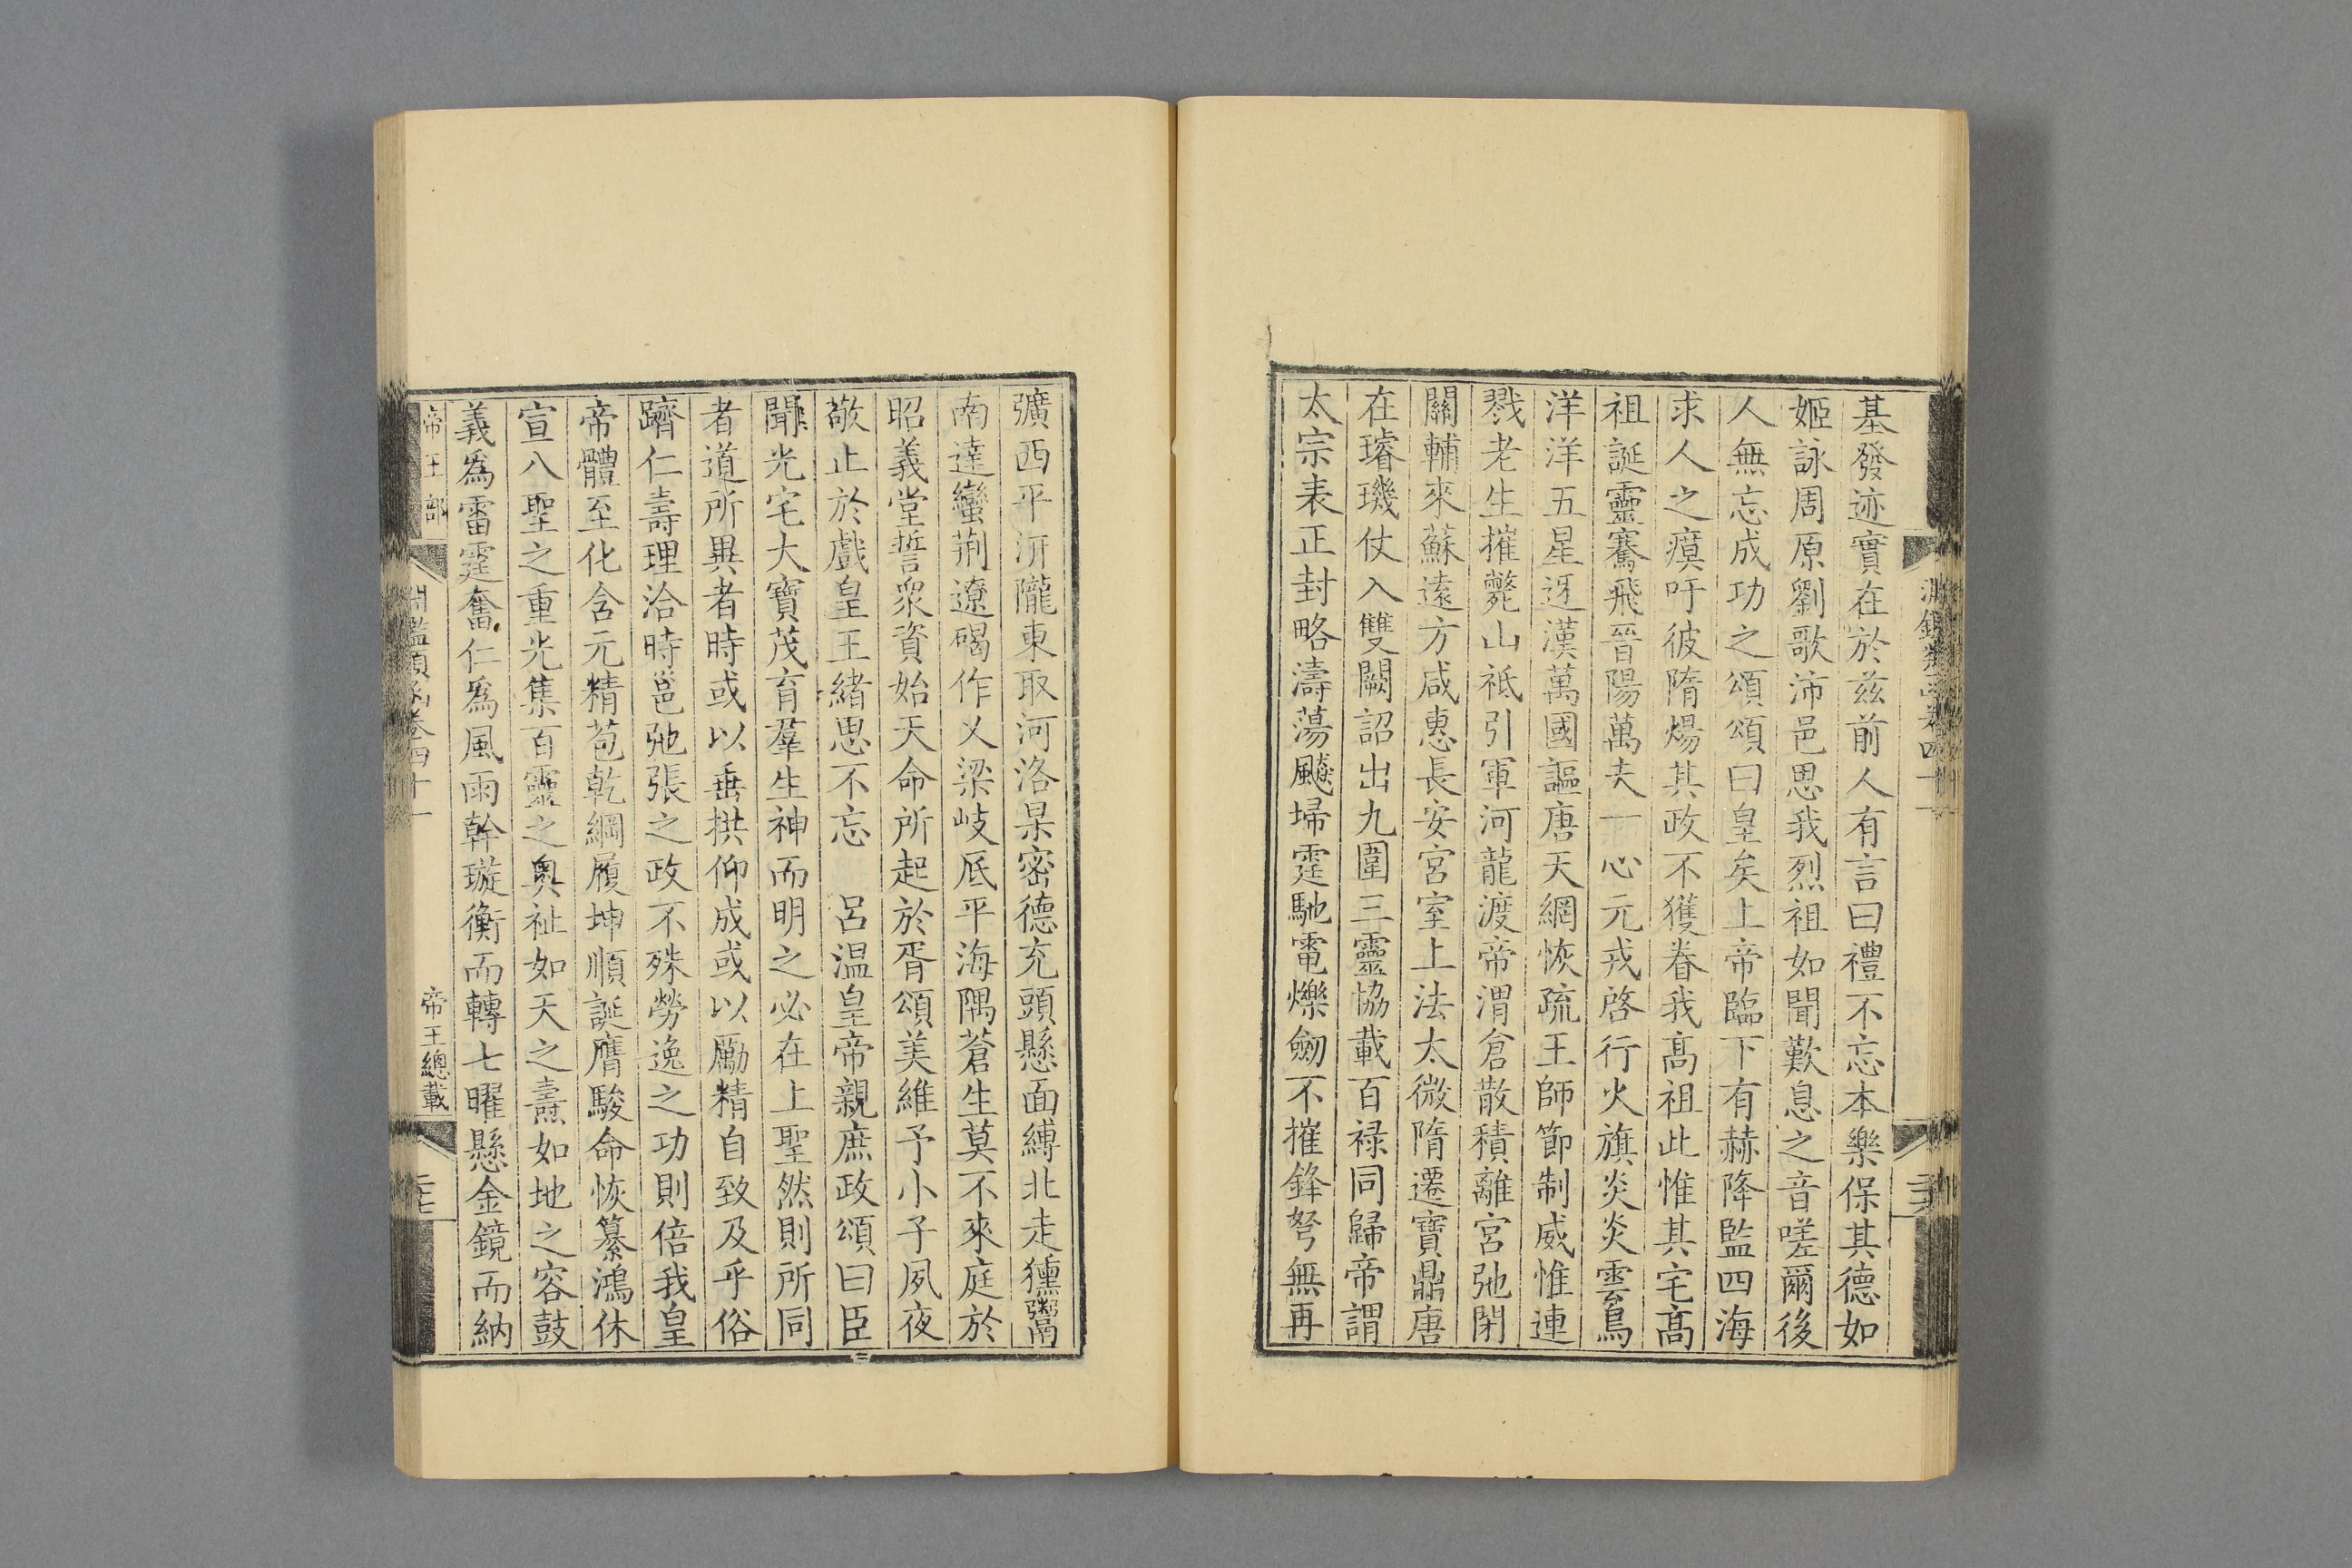 基發迹實在於茲前人有言曰禮不忘本樂保其德如
姬詠周原劉歌沛邑思我烈祖如聞歎息之音嗟爾後
人無忘成功之頌頌曰皇矣上帝臨下有赫降監四海
求人之瘼吁彼隋煬其政不獲眷我髙祖此惟其宅髙
祖誕靈騫飛晉陽萬夫一心元戎啓行火旗炎炎雲鳥
洋洋五星迓漢萬國謳唐天綱恢疏王師節制威惟連
戮老生摧斃山祇引軍河龍渡帝渭倉散積離宮弛閉
關輔來蘇遠方咸惠長安宮室上法太微隋遷寶鼎唐
在璿璣仗入雙闕詔出九圍三靈協載百禄同歸帝謂
太宗表正封略濤蕩飈埽霆馳電爍劒不摧鋒弩無再
彍西平汧隴東取河洛杲密德充頭懸面縛北走獯鬻
南達蠻荆遼碣作乂梁岐厎平海隅蒼生莫不來庭於
昭義堂誓衆資始天命所起於胥頌美維予小子夙夜
敬止於戲皇王緒思不忘　呂温皇帝親庶政頌曰臣
聞光宅大寶茂育羣生神而明之必在上聖然則所同
者道所異者時或以垂拱仰成或以勵精自致及乎俗
躋仁壽理洽時邕弛張之政不殊勞逸之功則倍我皇
帝體至化含元精苞乾綱履坤順誕膺駿命恢纂鴻休
宣八聖之重光集百靈之奧祉如天之燾如地之容鼓
義爲雷霆奮仁爲風雨幹璇衡而轉七曜懸金鏡而納
帝王部
淵鑑類函卷四十一
帝王總載